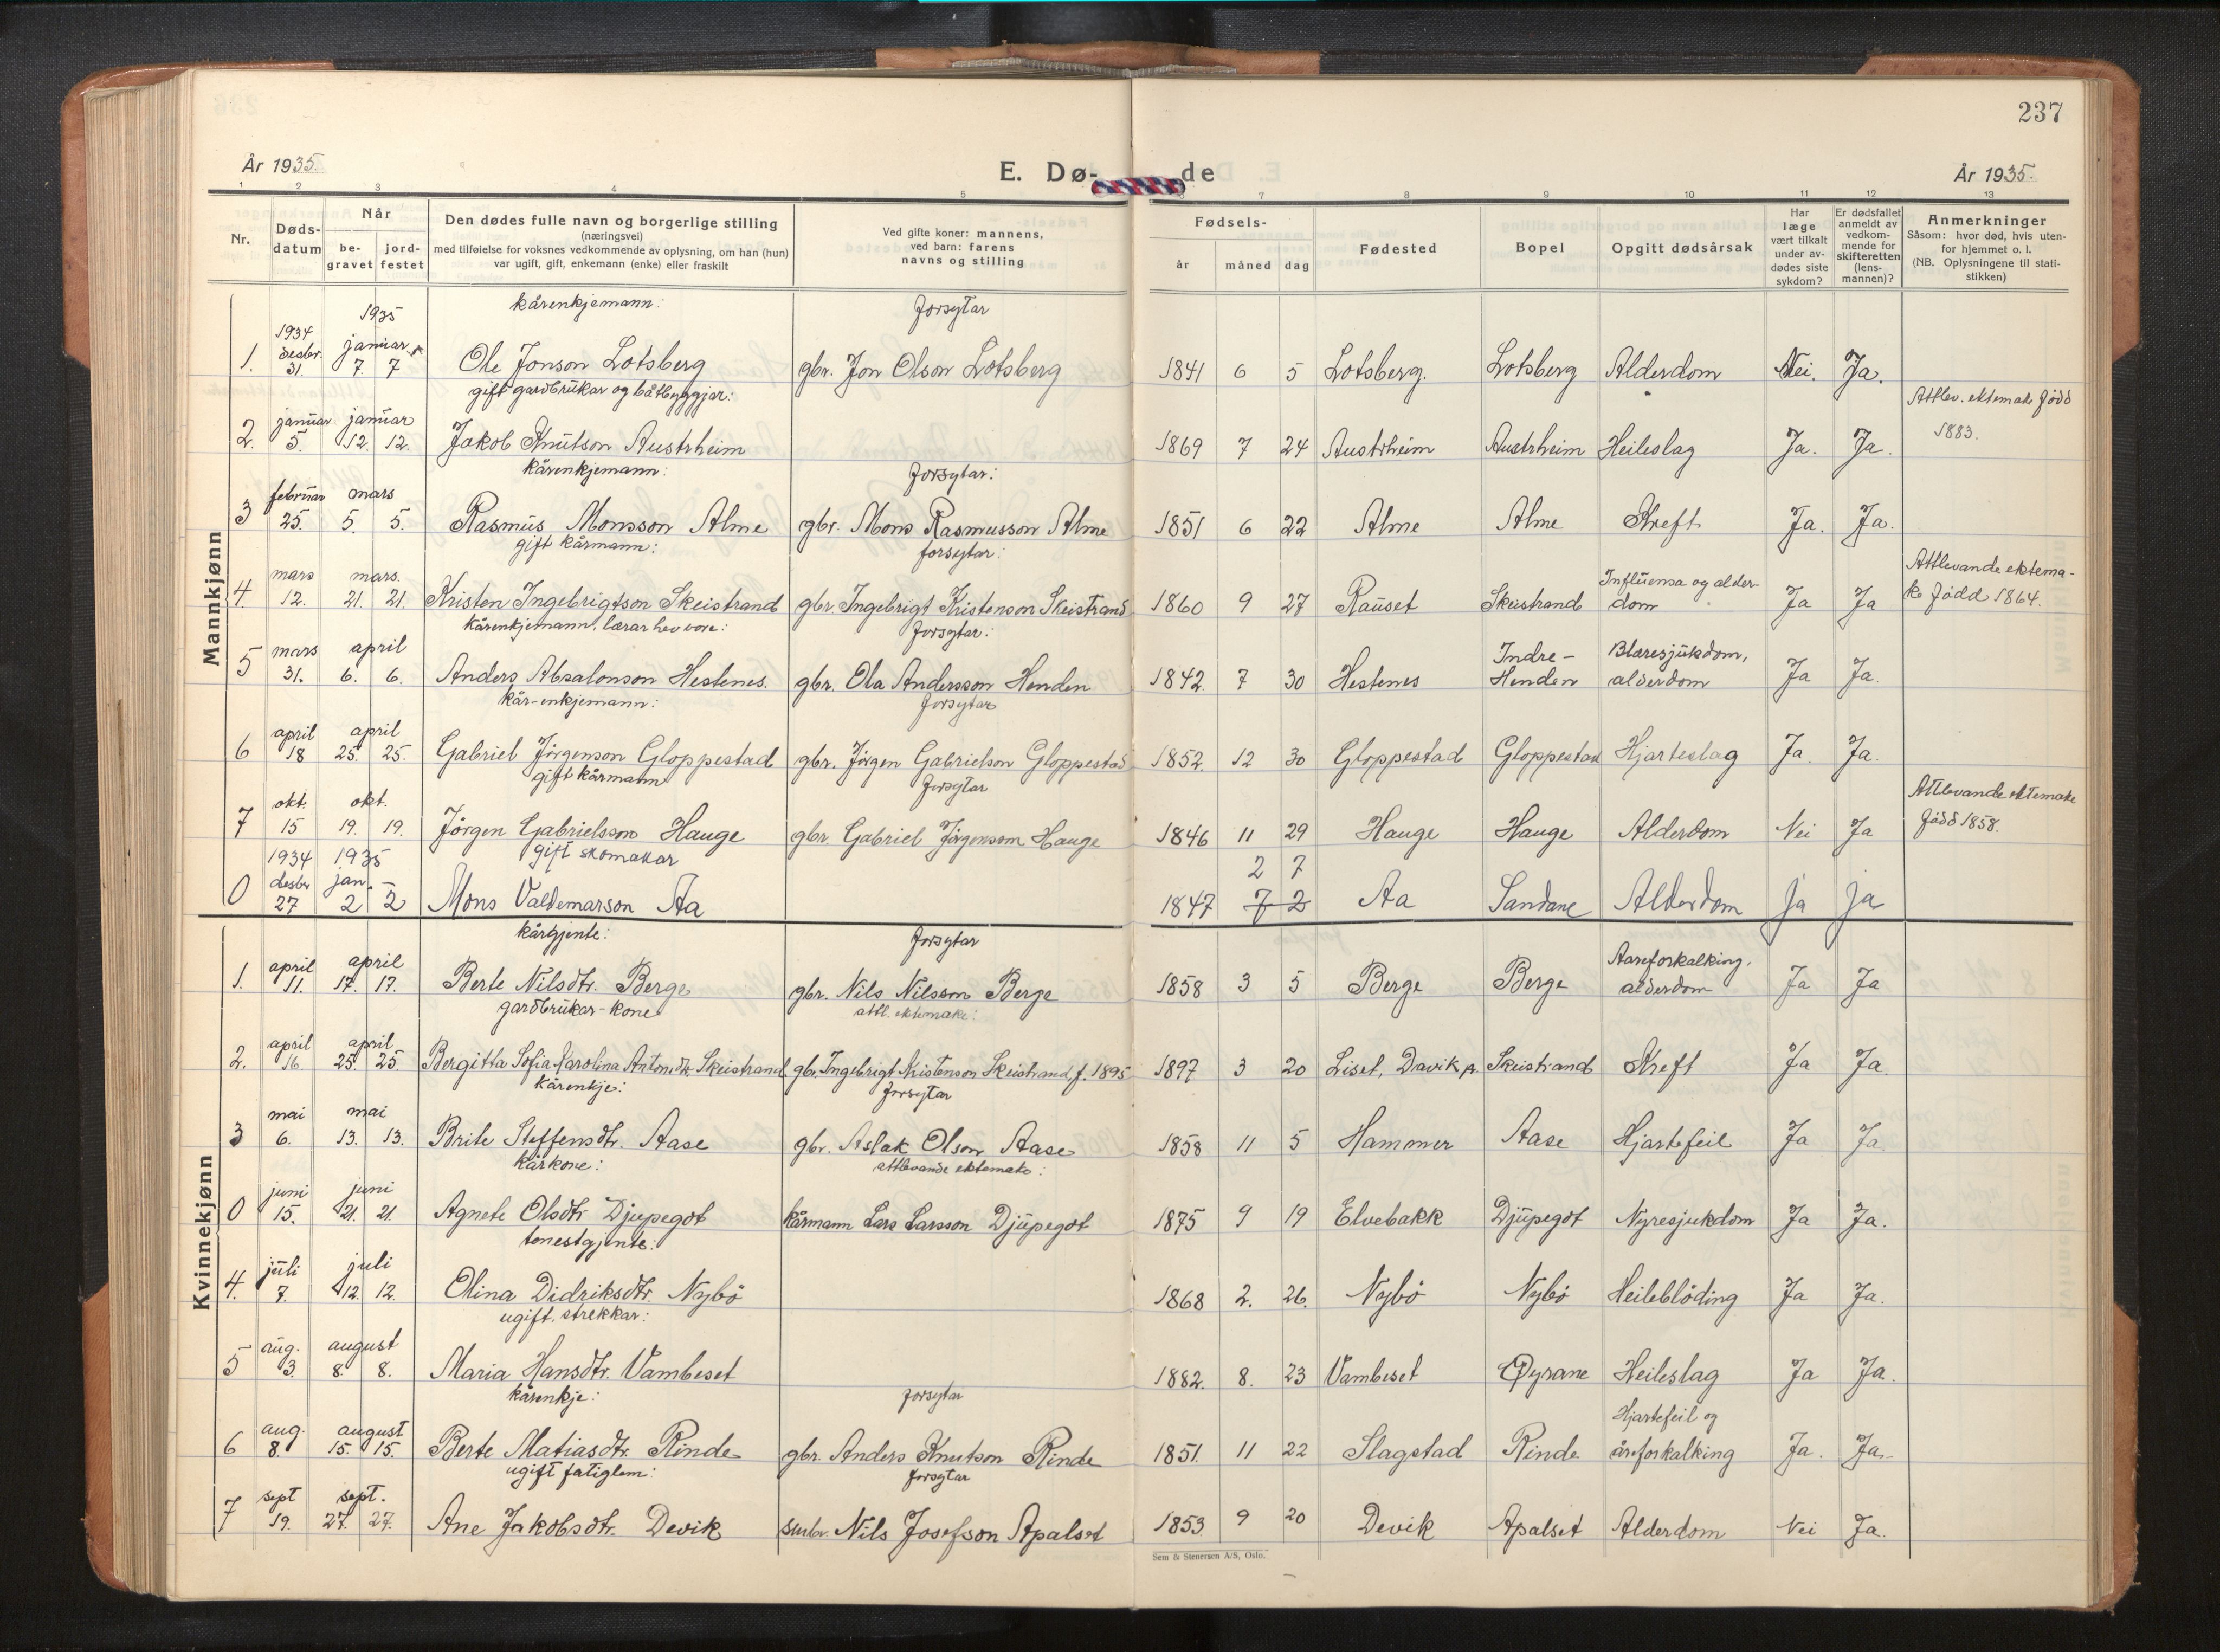 237
År 1935.
E. Dø-de
År 1935.
1 2 3 4 5 7 8 9 10 11 12 13
Nr.
Døds-
datum
Når
be-
gravet
jord-
festet
Den dødes fulle navn og borgerlige stilling
(næringsvei)
med tilføielse for voksnes vedkommende av oplysning, om han (hun)
var ugift, gift, enkemann (enke) eller fraskilt
Ved gifte koner: mannens,
ved barn: farens
navns og stilling
Fødsels-
år måned dag
Fødested
Bopel
Opgitt dødsårsak
Har
læge
vært tilkalt
under av-
dødes siste
sykdom?
Er dødsfallet
anmeldt av
vedkom-
mende for
skifteretten
(lens-
mannen)?
Anmerkninger
Såsom: hvor død, hvis uten-
for hjemmet o. l.
(NB. Oplysningene til stati-
stikken)
Mannkjønn
1935 kårenkjemann: Forsytar
1934 desbr. januar
1. 31. 7. 7 Ole Jonson Lotsberg gbr. Jon Olson Lotsberg 1841 6 5 Lotsberg. Lotsberg Alderdom Nei. Ja.
gift gardbrukar og båtbyggjar: Attlev. ektemake fødd
januar januar
2. 5. 12. 12. Jakob Knutson Austrheim 1869 7 24 Austrheim Austrheim Heileslag Ja. Ja. 1883.
kårenkjemann: Forsytar:
februar mars
3 25. 5. 5. Rasmus Monsson Alme gbr. Mons Rasmusson Alme 1851 6 22 Alme Alme Kreft Ja. Ja.
gift kårmann: forsytar: Attlevande ektema-
mars mars. Influensa og alder-
4. 12. 21. 21. Kristen Ingebrigtson Skeistrand gbr. Ingebrigt Kristenson Skeistrand 1860 9 27 Rauset Skeistrand dom Ja Ja ke fødd 1864.
kårenkjemann, lærar hev vore: Forsytar:
mars april Indre- Blæresjukdom,
5 31. 6. 6. Anders Absalonson Hestenes. gbr. Ola Andersson Henden 1842 7 30 Hestenes Henden alderdom Ja Ja.
kår-enkjemann: Forsytar
april april
6 18 25. 25. Gabriel Jörgenson Gloppestad gbr. Jörgen Gabrielson Gloppestad 1852. 12 30 Gloppestad Gloppestad Hjarteslag Ja. Ja.
gift kårmann Forsytar Attlevande ektemake
okt. okt.
7 15 19. 19. Jörgen Gabrielsson Hauge gbr. Gabriel Jörgenson Hauge 1846 11 29 Hauge Hauge Alderdom Nei Ja fødd 1858.
1934 1935 gift skomakar 2 7
desbr jan.
0 27 2 2 Mons Valdemarson Aa 1847 7 2 Aa Sandane Alderdom ja ja
Kvinnekjønn
kårgjente: Forsytar
april april Aareforkalking,
1. 11. 17. 17. Berte Nilsdtr. Berge gbr. Nils Nilsson Berge 1858 3 5 Berge Berge alderdom Ja Ja
gardbrukar-kone attl. ektemake:
april april
2. 16 25. 25. Bergitta Sofia Karolina Antonsdtr. Skeistrand gbr. Ingebrigt Kristenson Skeistrand f. 1895 1897 3 20 Liset, Davik p. Skeistrand Kreft Ja Ja.
kårenkje: Forsytar
mai mai
3 6. 13. 13. Brite Steffensdtr. Aase gbr. Aslak Olson Aase 1858 11 5 Hammer Aase Hjartefeil Ja Ja
kårkone: attlevande ektemake:
juni juni
0 15. 21. 21. Agnete Olsdtr Djupegot kårmann Lars Larsson Djupegot 1875 9 19 Elvebakk Djupegot Nyresjukdom Ja Ja.
tenestgjente:
juli juli
4. 7. 12. 12. Olina Didriksdtr. Nybö 1868 2. 26. Nybö Nybö Heileblöding Ja Ja.
ugift. strekkar:
aug. august
5 3. 8. 8. Maria Hansdtr. Vambeset 1882. 8. 23 Vambeset Øyrane Heileslag Ja Ja.
kårenkje: forsytar Hjartefeil og
aug. august
6 8. 15. 15. Berte Matiasdtr. Rinde gbr. Anders Knutson Rinde 1851. 11 22 Slagstad Rinde åreforkalking Ja. Ja.
ugift fatiglem: Forsytar
sept sept.
7 19. 27. 27. Ane Jakobsdtr. Devik smbr. Nils Josefson Apalset 1853. 9 20 Devik Apalset Alderdom Nei Ja.
Sem & Stenersen A/S, Oslo.